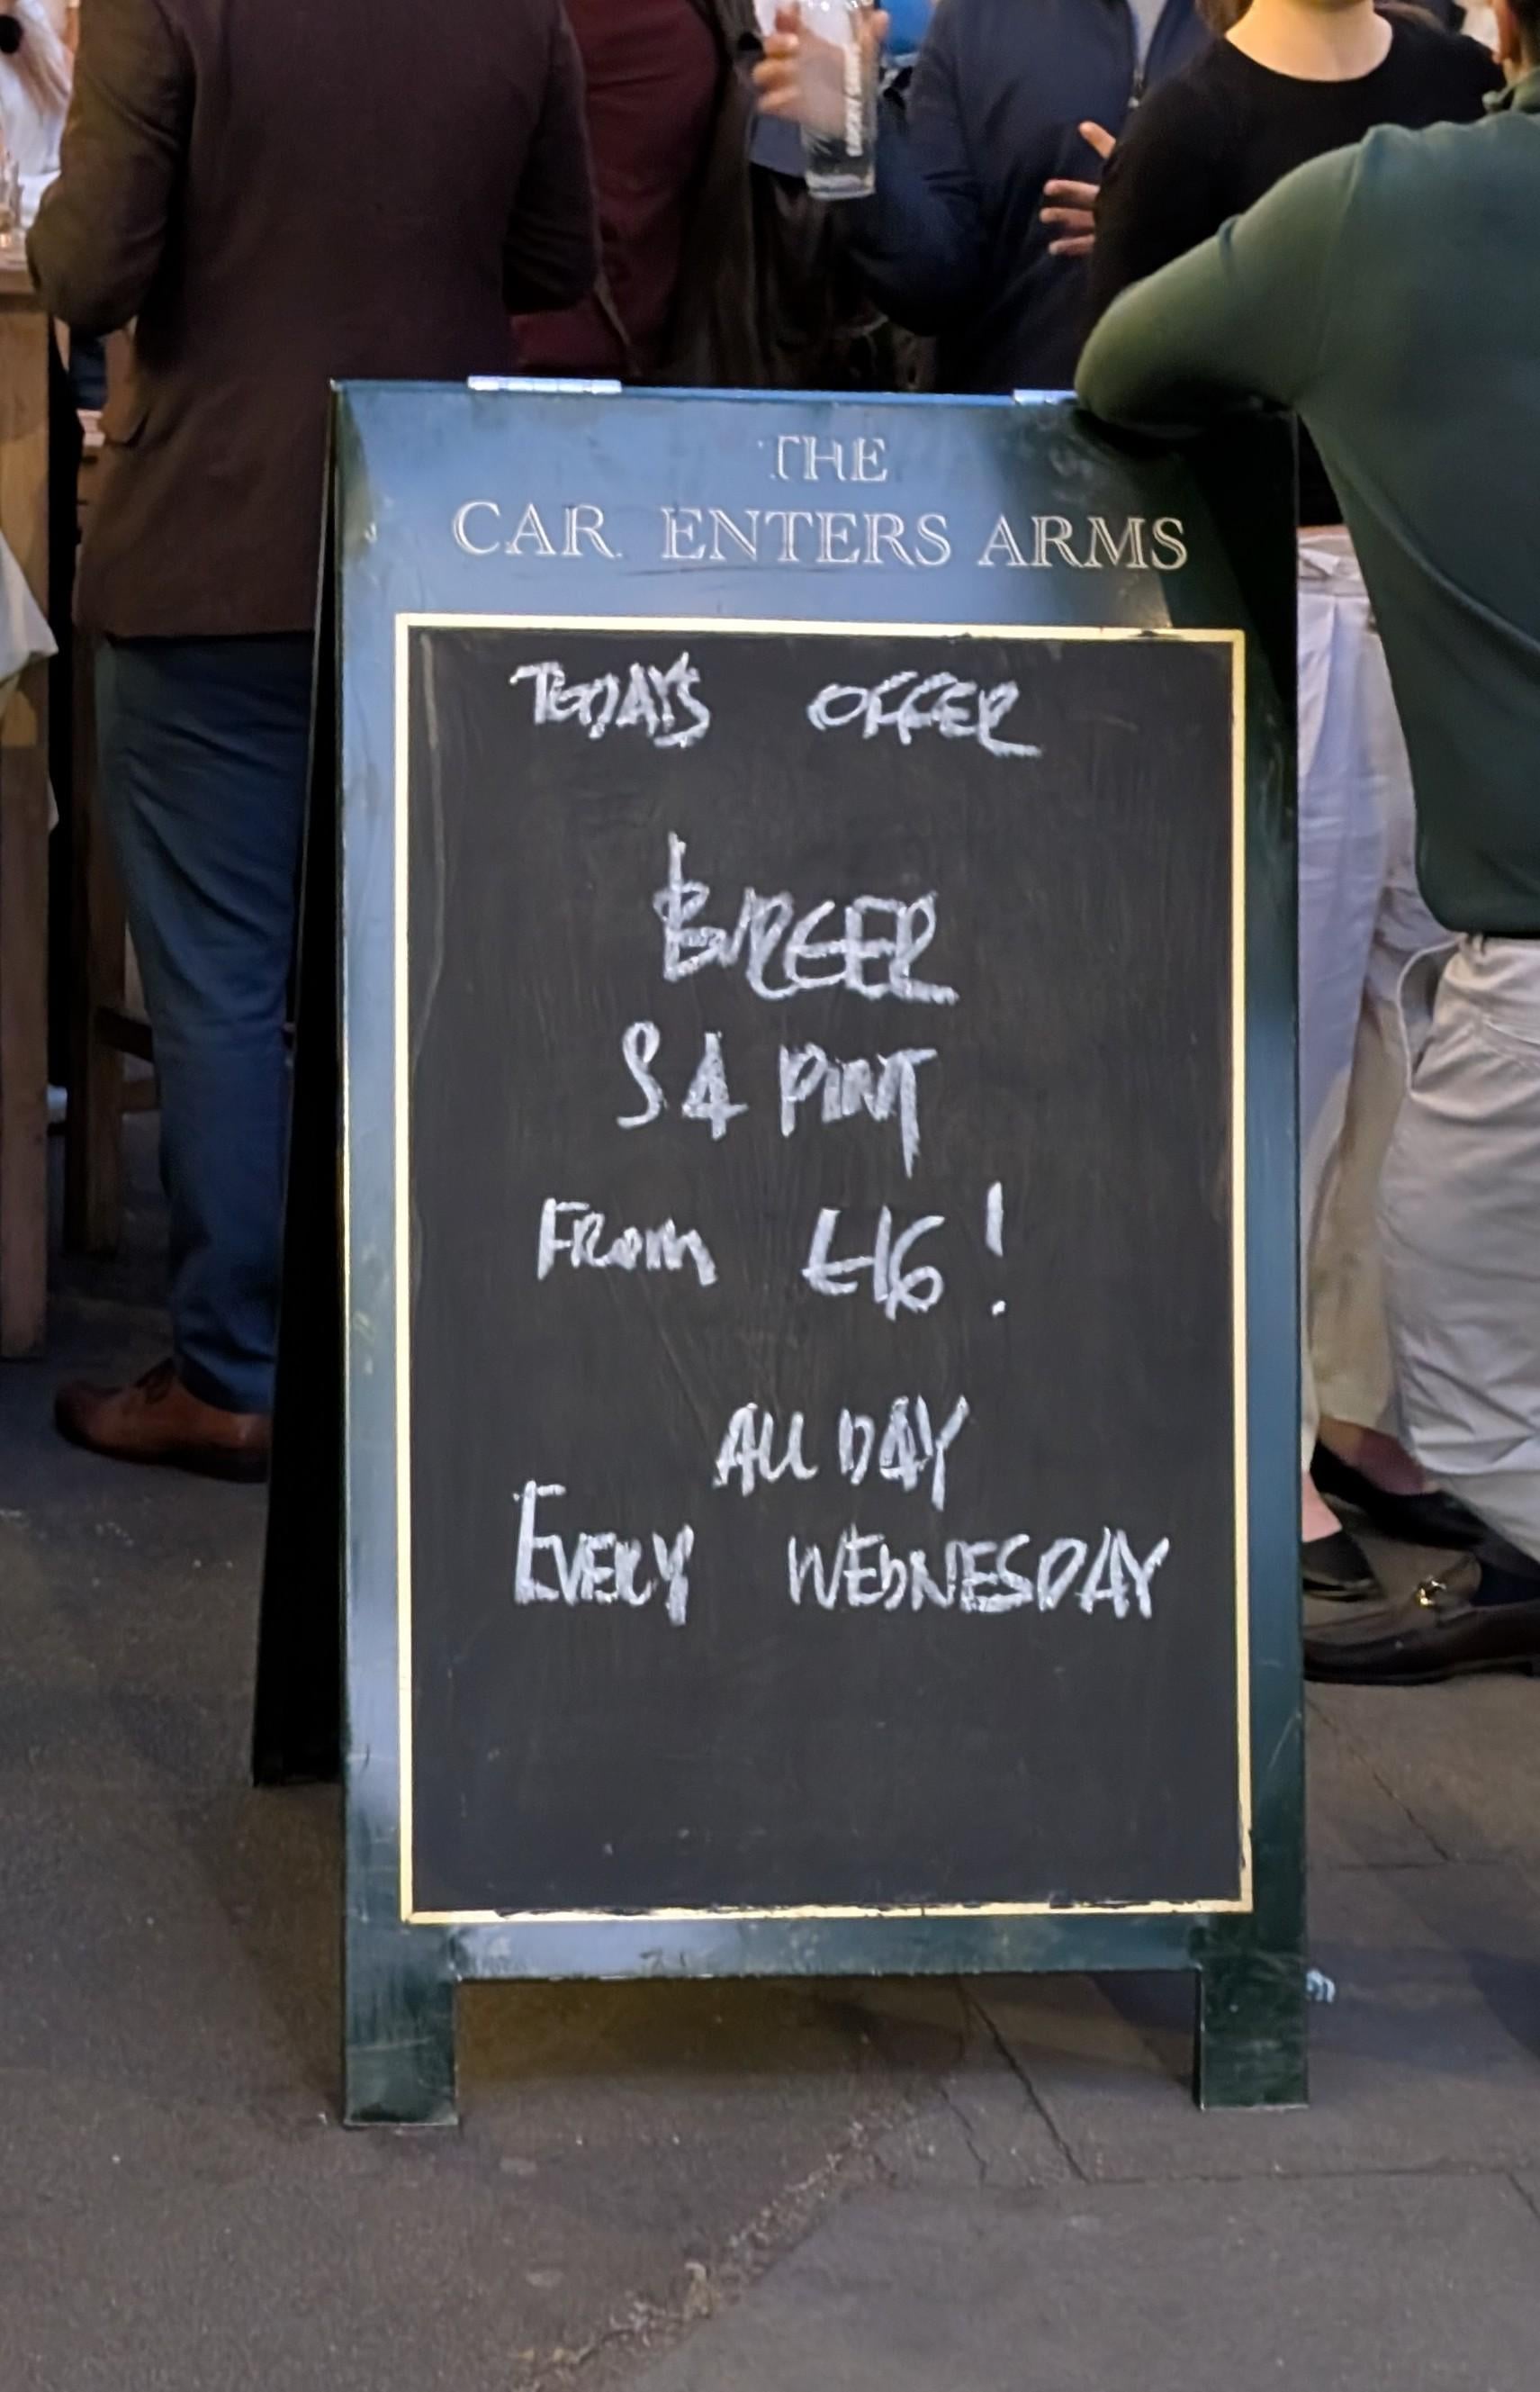 THE
CAR ENTERS ARMS
TODAY'S OFFER
BURGER
& A PINT
FROM £16!
ALL DAY
EVERY WEDNESDAY